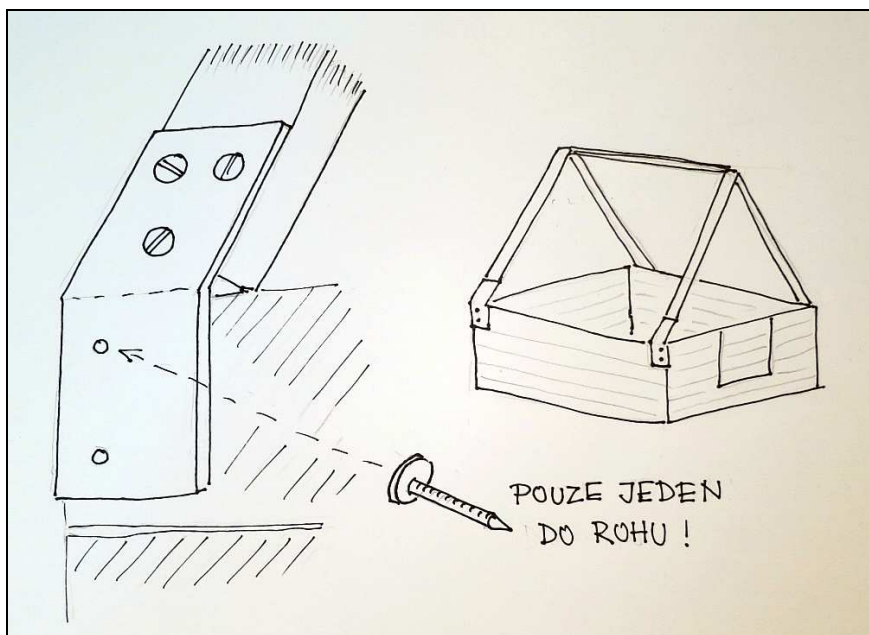 POUZE JEDEN
DO ROHU !